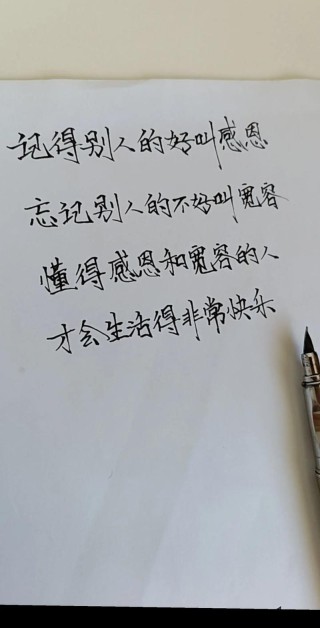 记得别人的好叫感恩
忘记别人的不好叫宽容
懂得感恩和宽容的人
才会生活得非常快乐